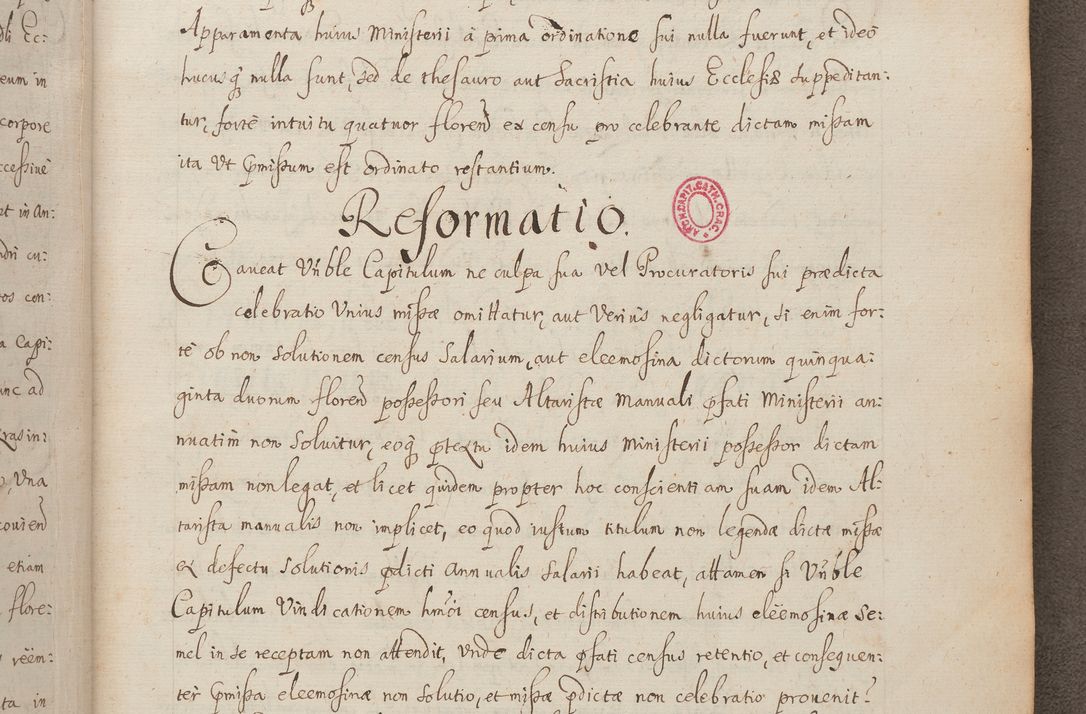 Apparamenta huius Ministerii à prima ordinatione sui nulla fuerunt, et ideò
hucusq3 nulla sunt, sed de thesauro aut Sacristia huius Ecclesiæ suppeditan:
tur, fortè intuitu quatuor floren ex censu pro celebrante dictam missam
ita Vt pmissum est ordinato restantium.
Reformatio.
ARCH. CAPIT. CATH. CRAC.
Caueat Vnble Capitulum ne culpa sua vel Procuratoris sui prædicta
celebratio Vnius missæ omittatur, aut Veriùs negligatur, si enim for:
tè ob non Solutionem census Salarium, aut eleemosina dictorum quinqua:
ginta duorum floren possessori seu Altaristæ Manuali pfati Ministerii an:
nuatim non Soluitur, eoq3 ptextu idem huius Ministerii possessor dictam
missam non legat, et licet quidem propter hoc conscientiam suam idem Al:
tarista manualis non implicet, eo quod iustum titulum non legendæ dictæ missæ
ex defectu Solutionis pdicti Annualis Salarii habeat, attamen si Vnble
Capitulum Vindicationem hmoi census, et distributionem huius eleemosinæ Se:
mel in se receptam non attendit, Vnde dicta pfati census retentio, et consequen:
ter pmissa eleemosinæ non Solutio, et missæ pdictæ non celebratio prouenit?
dli Ec:
eum in
corpore
ccessiuè
et in An:
ndri cu:
tos con:
a Capi:
unc ad
Vna
couien
etiam
flore:
reëm:
ta in